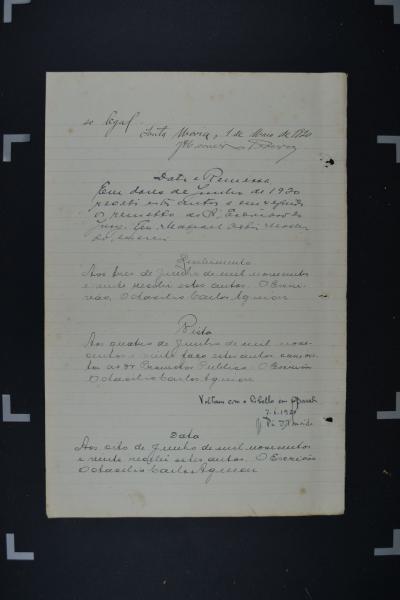 so legal.
Santa Maria, 1 de Maio de 1920
Data e Remessa
Em dores de Junho de 1920
recebi estes autos e em seguida
o remetto ao Sr. Escrivão do
Jury. Eu
Recebimento
Aos tres de Junho de mil novecentos
e vinte recebi estes autos. O Escri-
vão, Octacilio Carlos Aymon
Vista
Aos quatro de Junho de mil nove-
centos e vinte faço estes autos com vis-
ta ao Dr Promotor Publico. O Escrivão
Octacilio Carlos Aymon
Voltam com o libello em separado
7.6.1920
Data
Aos oito de Junho de mil novecentos
e vinte recebi estes autos. O Escrivão
Octacilio Carlos Aymon